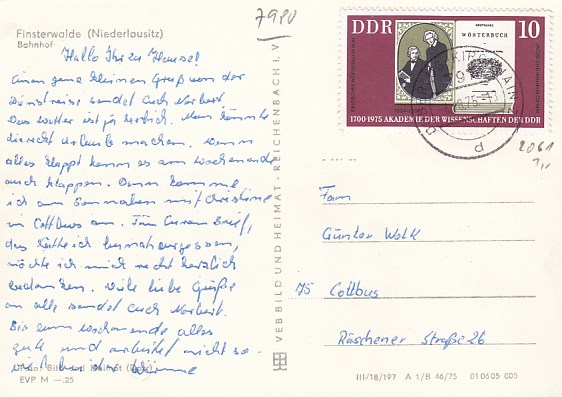 7980
Finsterwalde (Niederlausitz)
Bahnhof
Hallo Ihr zu Hause!
einen ganz kleinen Gruß von der
Dienstreise sendet Euch Norbert.
Das Wetter ist ja herrlich. Man könnte
direkt Urlaub machen. Wenn
alles klappt kann es am Wochenende
auch klappen. Dann komme
ich am Sonnabend mit Christine
in Cottbus an. Für Euren Brief,
das hätte ich beinah vergessen,
möchte ich mich recht herzlich
bedanken. Viele liebe Grüße
an alle sendet Euch Norbert.
Bis zum Wochenende alles
gute und arbeitet nicht so
viel
EVP M —.25
VEB BILD UND HEIMAT · REICHENBACH I. V.
DDR
10
DEUTSCHES
WÖRTERBUCH
1700-1975 AKADEMIE DER WISSENSCHAFTEN DER DDR
d
2061
Fam
Günter
75 Cottbus
Räschener Straße 26
III/18/197 A 1/B 46/75 01 06 05 005